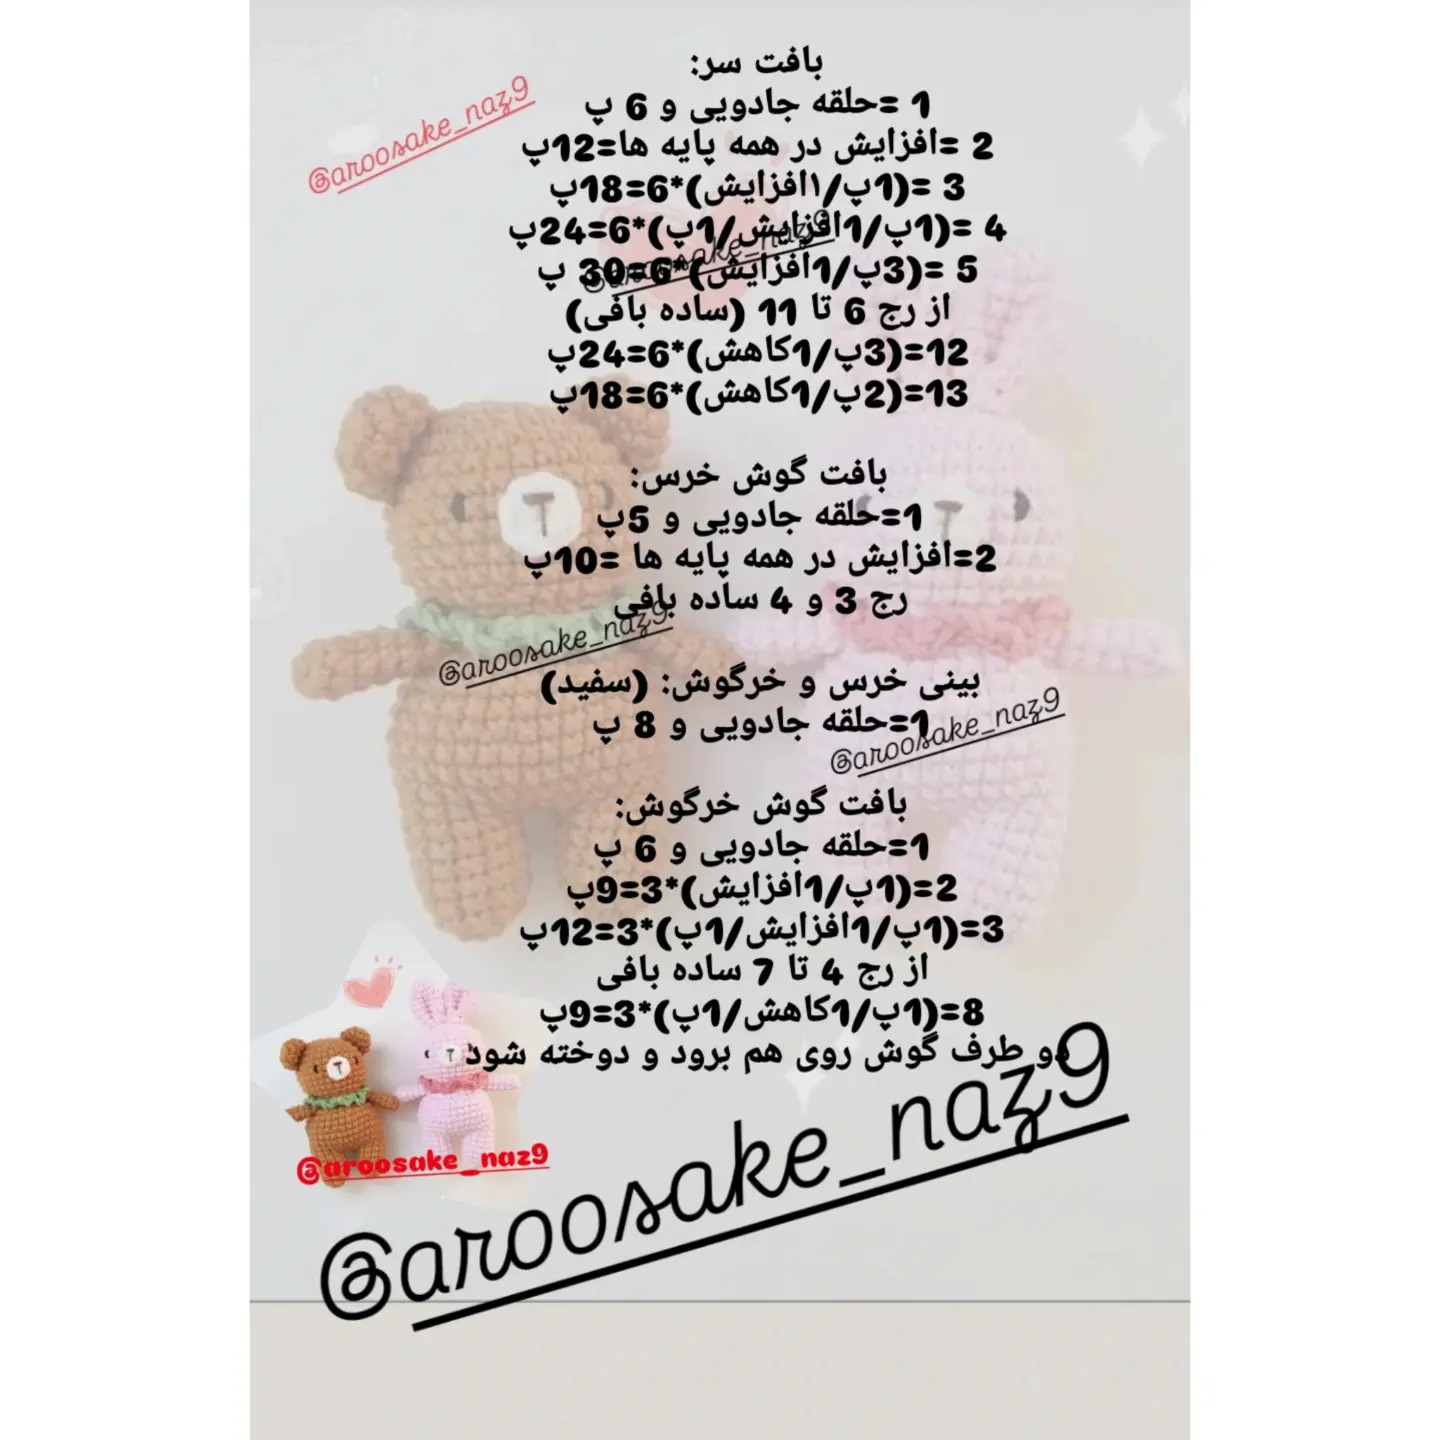 بافت سر:
1 =حلقه جادویی و 6 پ
@aroosake_naz9
2 =افزایش در همه پایه ها=12پ
3 =(1پ/۱افزایش)*6=18پ
4 =(1پ/1افزایش/1پ)*6=24پ
@aroosake_naz9
5 =(3پ/1افزایش)*6=30 پ
از رج 6 تا 11 (ساده بافی)
12=(3پ/1کاهش)*6=24پ
13=(2پ/1کاهش)*6=18پ
بافت گوش خرس:
1=حلقه جادویی و 5پ
2=افزایش در همه پایه ها =10پ
رج 3 و 4 ساده بافی
@aroosake_naz9
بینی خرس و خرگوش: (سفید)
1=حلقه جادویی و 8 پ
@aroosake_naz9
بافت گوش خرگوش:
1=حلقه جادویی و 6 پ
2=(1پ/1افزایش)*3=9پ
3=(1پ/1افزایش/1پ)*3=12پ
از رج 4 تا 7 ساده بافی
8=(1پ/1کاهش/1پ)*3=9پ
دو طرف گوش روی هم برود و دوخته شود
@aroosake_naz9
@aroosake_naz9